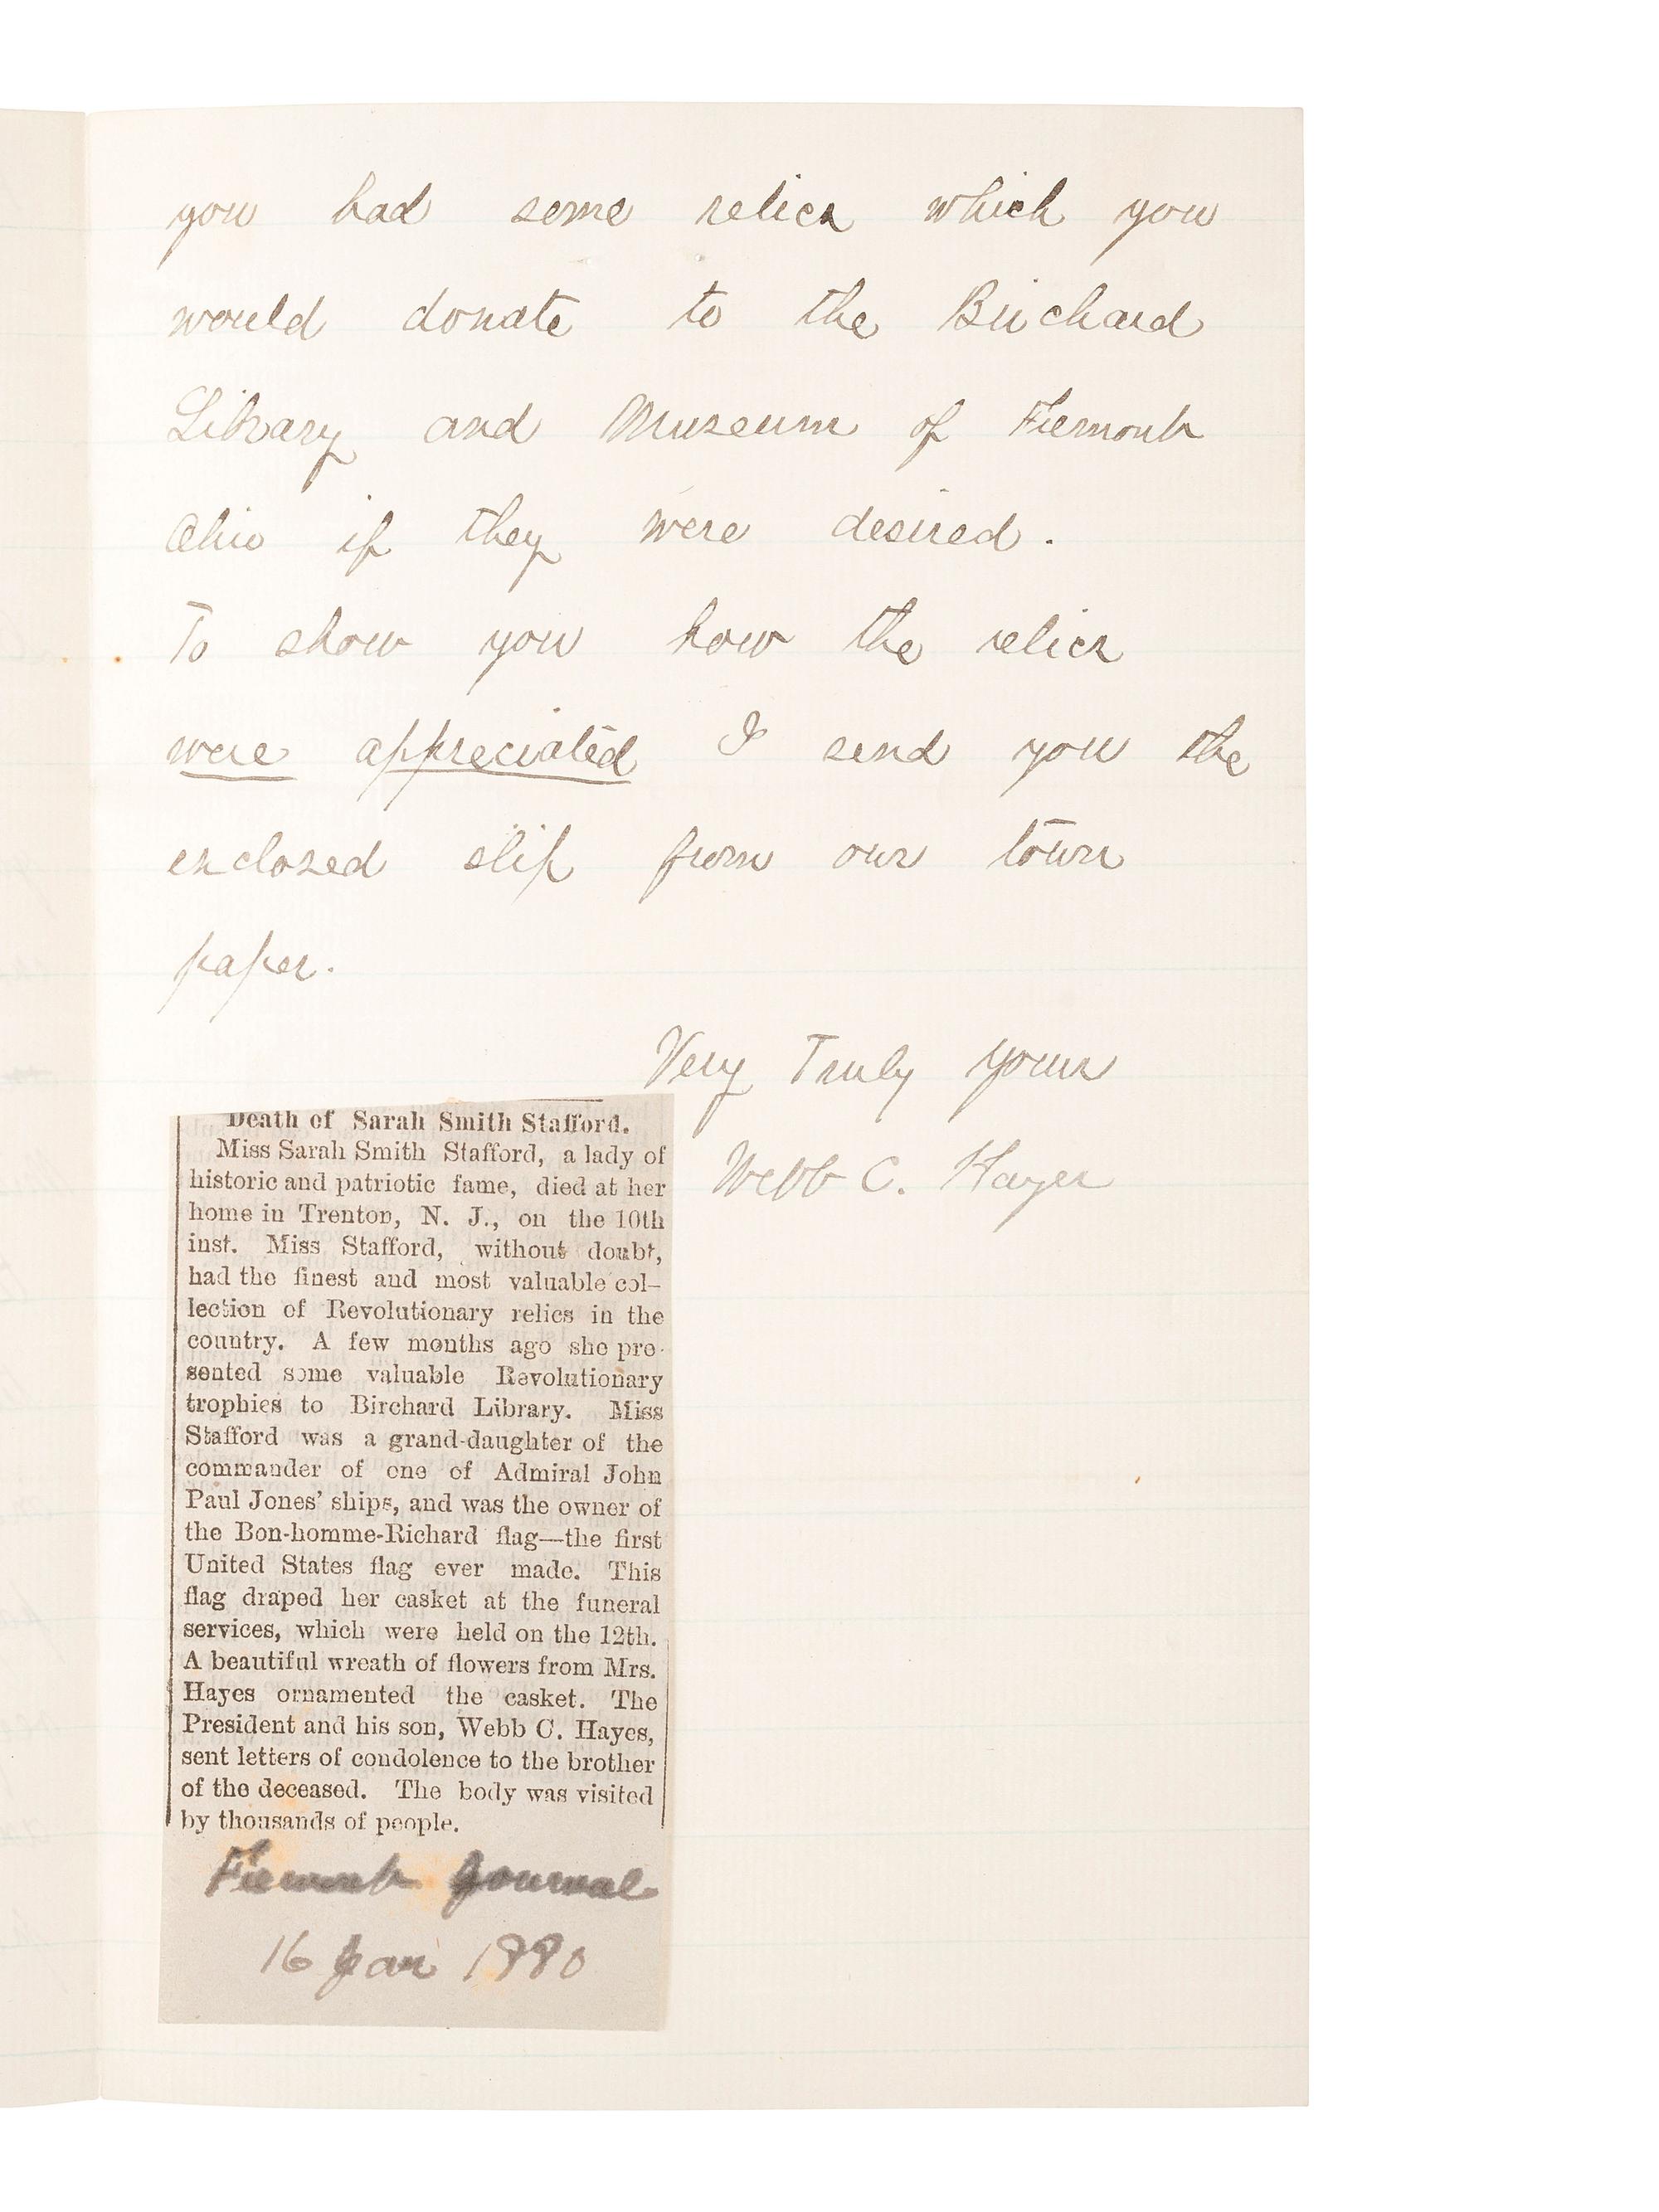 you had some relics which you
would donate to the Birchard
Library and Museum of Fremont
Ohio if they were desired.
To show you how the relics
were appreciated I send you the
enclosed slip from our town
paper.
Very Truly Yours
Webb C. Hayes
Death of Sarah Smith Stafford.
Miss Sarah Smith Stafford, a lady of
historic and patriotic fame, died at her
home in Trenton, N. J., on the 10th
inst. Miss Stafford, without doubt,
had the finest and most valuable col-
lection of Revolutionary relics in the
country. A few months ago she pre-
sented some valuable Revolutionary
trophies to Birchard Library. Miss
Stafford was a grand-daughter of the
commander of one of Admiral John
Paul Jones' ships, and was the owner of
the Bon-homme-Richard flag—the first
United States flag ever made. This
flag draped her casket at the funeral
services, which were held on the 12th.
A beautiful wreath of flowers from Mrs.
Hayes ornamented the casket. The
President and his son, Webb C. Hayes,
sent letters of condolence to the brother
of the deceased. The body was visited
by thousands of people.
Fremont Journal
16 Jan 1880